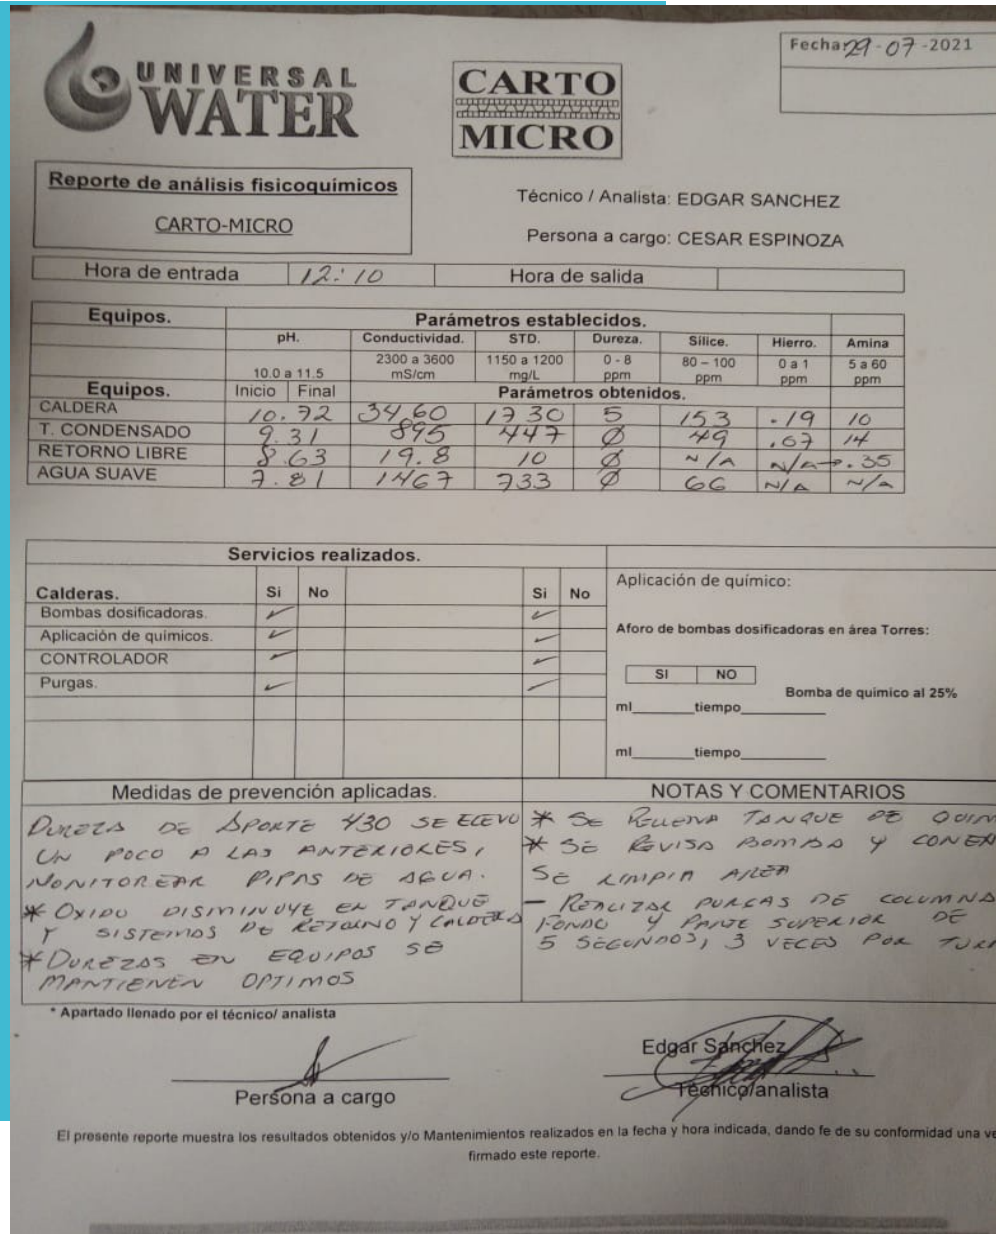 UNIVERSAL
WATER
CARTO
MICRO
Fecha: 29-07-2021
Reporte de análisis fisicoquímicos
CARTO-MICRO
Técnico / Analista: EDGAR SANCHEZ
Persona a cargo: CESAR ESPINOZA
Hora de entrada 12:10 Hora de salida
Equipos. Parámetros establecidos.
pH. Conductividad. STD. Dureza. Silice. Hierro. Amina
10.0 a 11.5 2300 a 3600 mS/cm 1150 a 1200 mg/L 0 - 8 ppm 80 – 100 ppm 0 a 1 ppm 5 a 60 ppm
Equipos. Inicio Final Parámetros obtenidos.
CALDERA 10.72 3460 1730 5 153 .19 10
T. CONDENSADO 9.31 895 447 Ø 49 .07 14
RETORNO LIBRE 8.63 19.8 10 Ø N/A N/A .35
AGUA SUAVE 7.81 1467 733 Ø 66 N/A N/A
Servicios realizados.
Calderas. Si No Si No
Bombas dosificadoras. ✓ ✓
Aplicación de químicos. ✓ ✓
CONTROLADOR ✓ ✓
Purgas. ✓ ✓
Aplicación de químico:
Aforo de bombas dosificadoras en área Torres:
SI NO
Bomba de quimico al 25%
ml______tiempo_________
ml______tiempo_________
Medidas de prevención aplicadas.
DUREZA DE APORTE 430 SE ELEVO
UN POCO A LAS ANTERIORES,
MONITOREAR PIPAS DE AGUA.
* OXIDO DISMINUYE EN TANQUE
Y SISTEMAS DE RETORNO Y CALDERA
* DUREZAS EN EQUIPOS SE
MANTIENEN OPTIMOS
NOTAS Y COMENTARIOS
* SE RELLENA TANQUE DE QUIM
* SE REVISA BOMBA Y CONEX
SE LIMPIA AREA
— REALIZAR PURGAS DE COLUMNA
FONDO Y PARTE SUPERIOR DE
5 SEGUNDOS, 3 VECES POR TURN
* Apartado llenado por el técnico/ analista
Persona a cargo
Edgar Sanchez
Técnico/analista
El presente reporte muestra los resultados obtenidos y/o Mantenimientos realizados en la fecha y hora indicada, dando fe de su conformidad una ve
firmado este reporte.